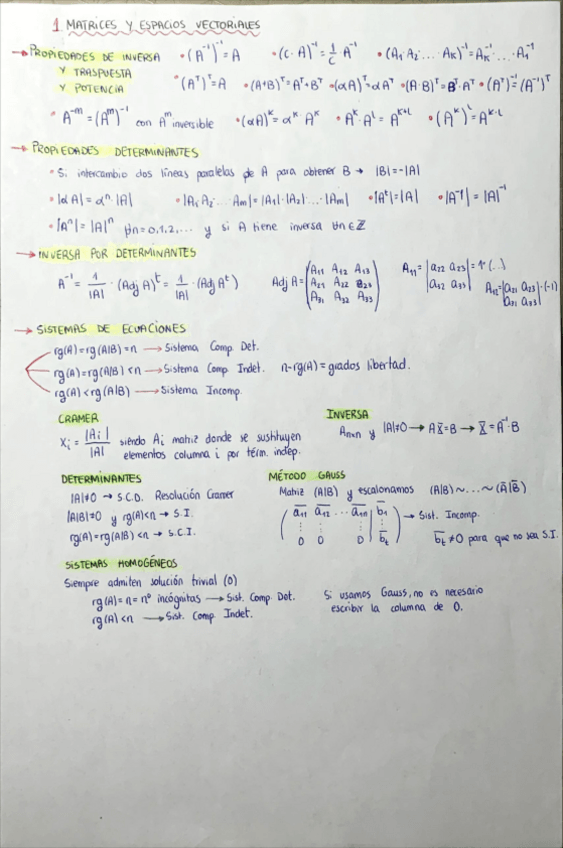 1. MATRICES Y ESPACIOS VECTORIALES
→ PROPIEDADES DE INVERSA Y TRASPUESTA Y POTENCIA
• (A⁻¹)⁻¹ = A • (C·A)⁻¹ = 1/C · A⁻¹ • (A₁·A₂·...·Aₖ)⁻¹ = Aₖ⁻¹·...·A₁⁻¹
• (Aᵀ)ᵀ = A • (A+B)ᵀ = Aᵀ+Bᵀ • (αA)ᵀ = αAᵀ • (A·B)ᵀ = Bᵀ·Aᵀ • (Aᵀ)⁻¹ = (A⁻¹)ᵀ
• A⁻ᵐ = (Aᵐ)⁻¹ con Aᵐ inversible • (αA)ᴷ = αᴷ·Aᴷ • Aᴷ·Aᴸ = Aᴷ⁺ᴸ • (Aᴷ)ᴸ = Aᴷ·ᴸ
→ PROPIEDADES DETERMINANTES
• Si intercambio dos líneas paralelas de A para obtener B → |B| = -|A|
• |αA| = αⁿ·|A| • |A₁·A₂·...·Aₘ| = |A₁|·|A₂|·...·|Aₘ| • |Aᵗ| = |A| • |A⁻¹| = |A|⁻¹
• |Aⁿ| = |A|ⁿ ∀n=0,1,2,... y si A tiene inversa ∀n∈ℤ
→ INVERSA POR DETERMINANTES
A⁻¹ = 1/|A| · (Adj A)ᵗ = 1/|A| · (Adj Aᵗ)
Adj A = (A₁₁ A₁₂ A₁₃
A₂₁ A₂₂ A₂₃
A₃₁ A₃₂ A₃₃)
A₁₁ = |a₂₂ a₂₃
a₃₂ a₃₃| = 1·(..)
A₁₂ = |a₂₁ a₂₃
a₃₁ a₃₃| · (-1)
→ SISTEMAS DE ECUACIONES
rg(A) = rg(A|B) = n → Sistema Comp. Det.
rg(A) = rg(A|B) < n → Sistema Comp Indet. n-rg(A) = grados libertad.
rg(A) < rg(A|B) → Sistema Incomp.
CRAMER
Xᵢ = |Aᵢ|/|A| siendo Aᵢ matriz donde se sustituyen
elementos columna i por térm. indep.
INVERSA
Aₙₓₙ y |A|≠0 → AX̄ = B → X̄ = A⁻¹·B
DETERMINANTES
|A|≠0 → S.C.D. Resolución Cramer
|A|B|=0 y rg(A)<n → S.I.
rg(A) = rg(A|B) < n → S.C.I.
MÉTODO GAUSS
Matriz (A|B) y escalonamos (A|B) ~ ... ~ (Ā|B̄)
(a̅₁₁ a̅₁₂ ... a̅₁ₙ | b̅₁
⋮ ⋮ ⋮
0 0 0 | b̅ₜ) → Sist. Incomp.
b̅ₜ ≠ 0 para que no sea S.I.
SISTEMAS HOMOGÉNEOS
Siempre admiten solución trivial (0)
rg(A) = n = nº incógnitas → Sist. Comp. Det.
rg(A) < n → Sist. Comp. Indet.
Si usamos Gauss, no es necesario
escribir la columna de 0.